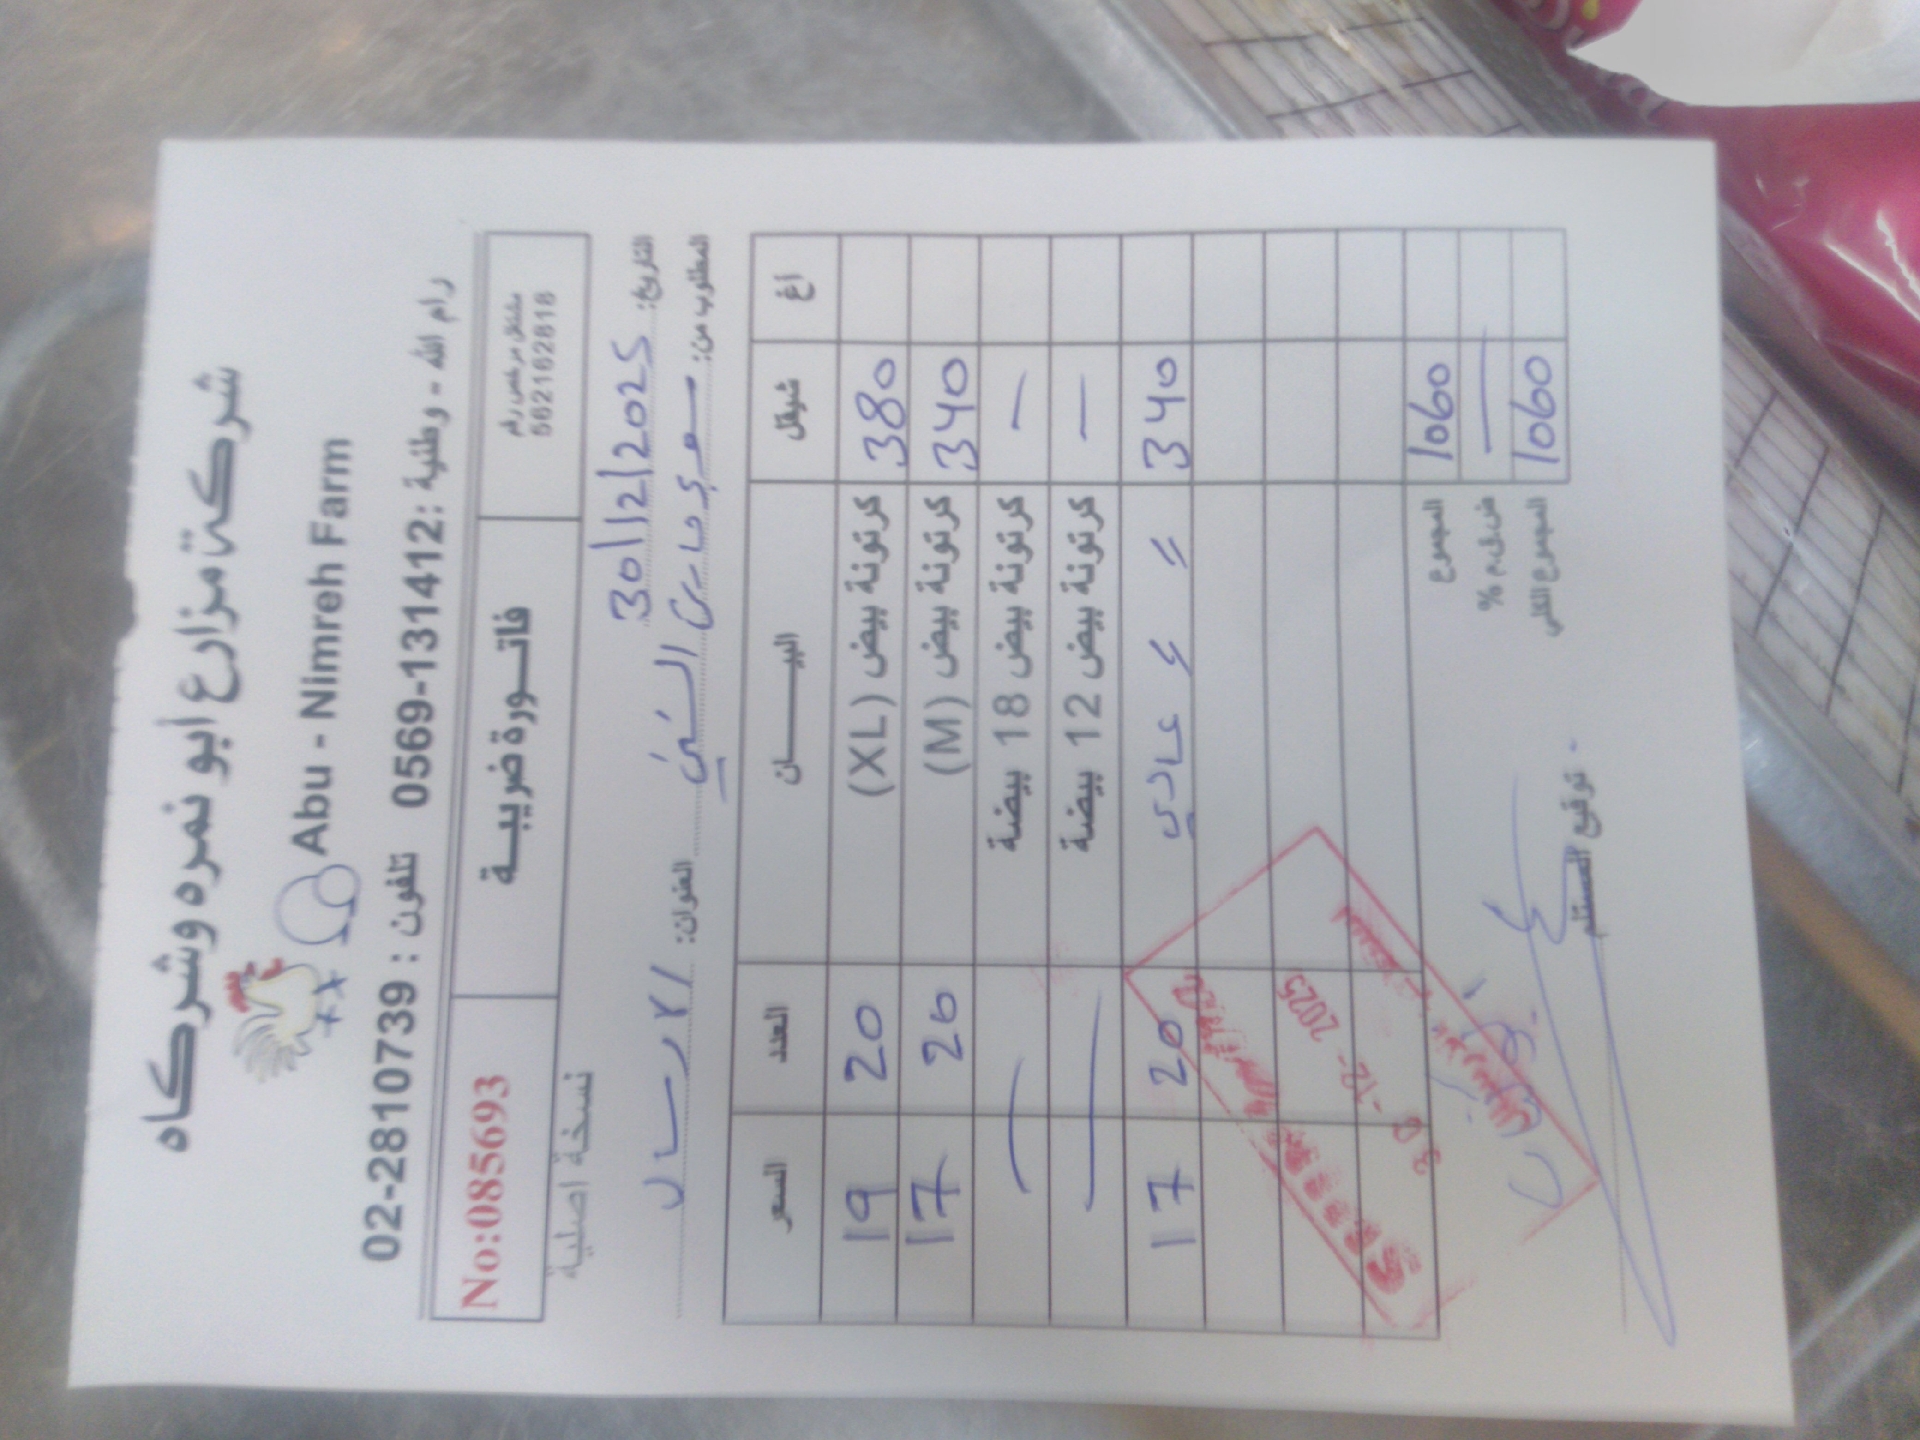 شركة مزارع أبو نمره وشركاه
Abu - Nimreh Farm
رام الله - وطنية : 0569-131412 تلفون : 02-2810739
مشتغل مرخص رقم
562162818
فاتـــورة ضريبيــة
No:085693
نسخة اصلية
التاريخ: 30/12/2025
المطلوب من: السني
العنوان: الارسال
اغ شيقل البيـــــــان العدد السعر
380 كرتونة بيض (XL) 20 19
340 كرتونة بيض (M) 20 17
— كرتونة بيض 18 بيضة — —
— كرتونة بيض 12 بيضة — —
340 〃 〃 عادي 20 17
المجموع 1060
ض.ق.م % —
المجموع الكلي 1060
توقيع المستلم
30 -12- 2025